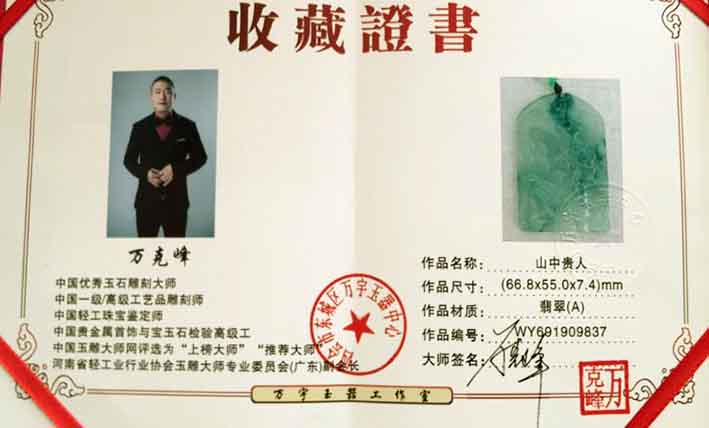 收藏證書
万克峰
中国优秀玉石雕刻大师
中国一级/高级工艺品雕刻师
中国轻工珠宝鉴定师
中国贵金属首饰与宝玉石检验高级工
中国玉雕大师网评选为“上榜大师”“推荐大师”
河南省轻工业行业协会玉雕大师专业委员会(广东)副会长
四会市东城区万宇玉器中心
作品名称: 山中贵人
作品尺寸: (66.8x55.0x7.4)mm
作品材质: 翡翠(A)
作品编号: WY691909837
大师签名:
万克峰
万宇玉器工作室